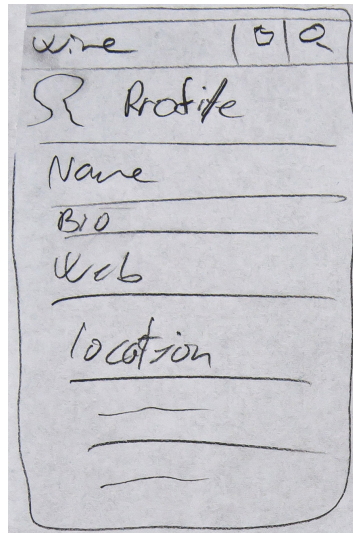 wine
Profile
Name
Bio
Web
location